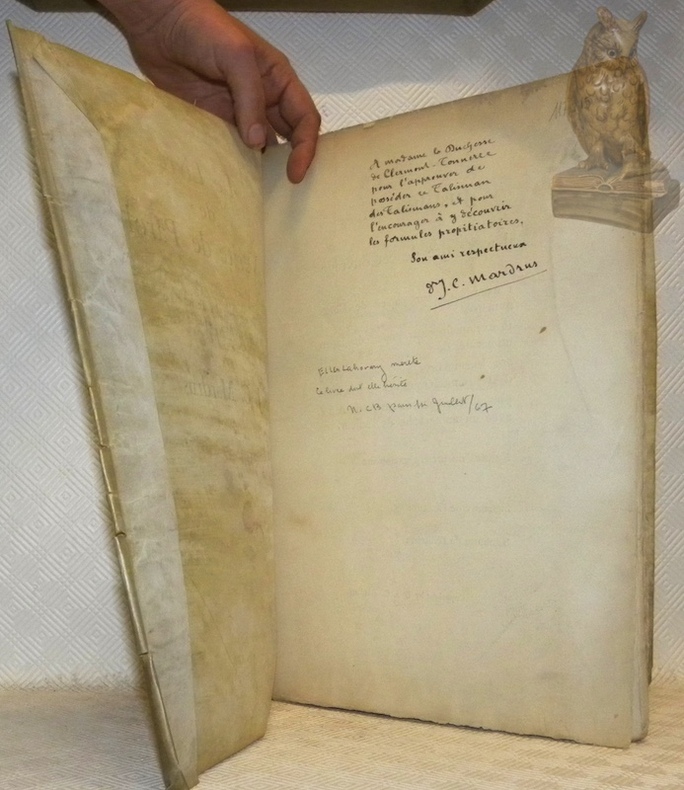 A madame la Duchesse
de Clermont-Tonnerre
pour l'approuver de
posséder ce Talisman
des Talismans, et pour
l'encourager à y découvrir
les formules propitiatoires,
Son ami respectueux
Dr J. C. Mardrus
mérite
ce livre dont elle hérite
/67